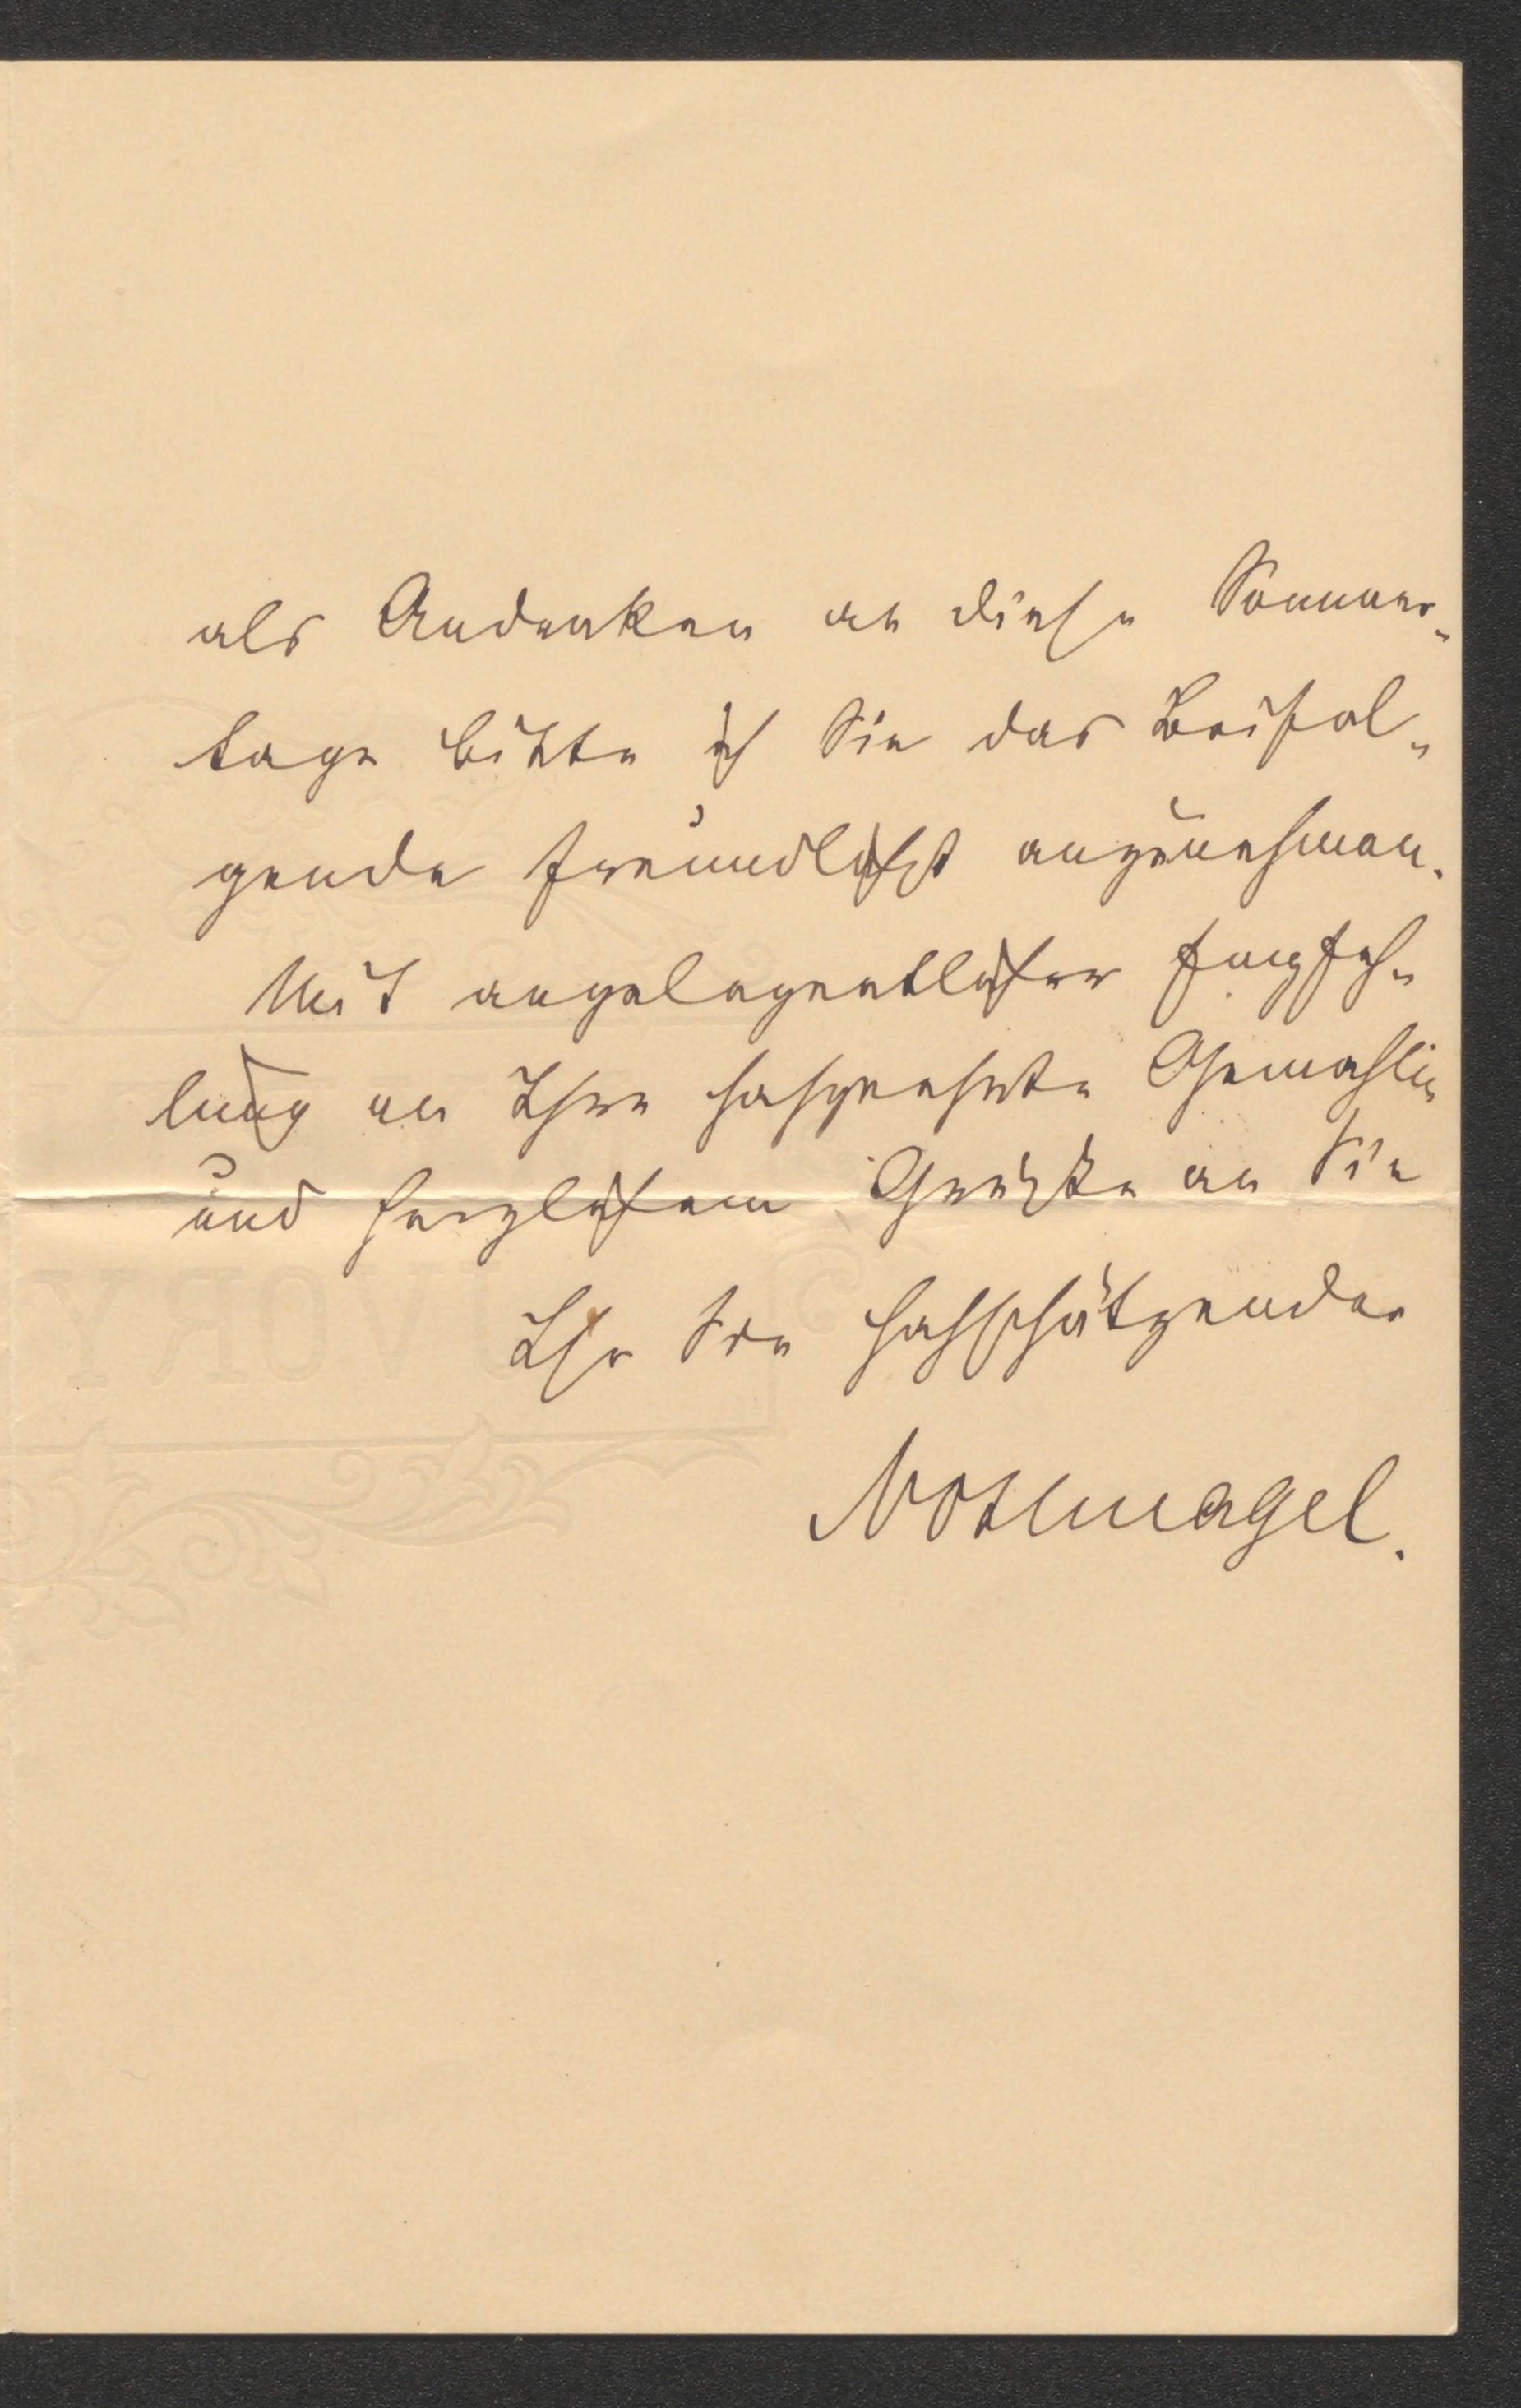 als Andenken an diese Sommer-
tage bitte ich Sie das Beifol-
gende freundlichst anzunehmen.
Mit angelegentlicher Empfeh-
lung an Ihre hochgeehrte Gemahlin
und herzlichem Gruße an Sie
Ihr Sie hochschätzender
Nothnagel.
IVORY